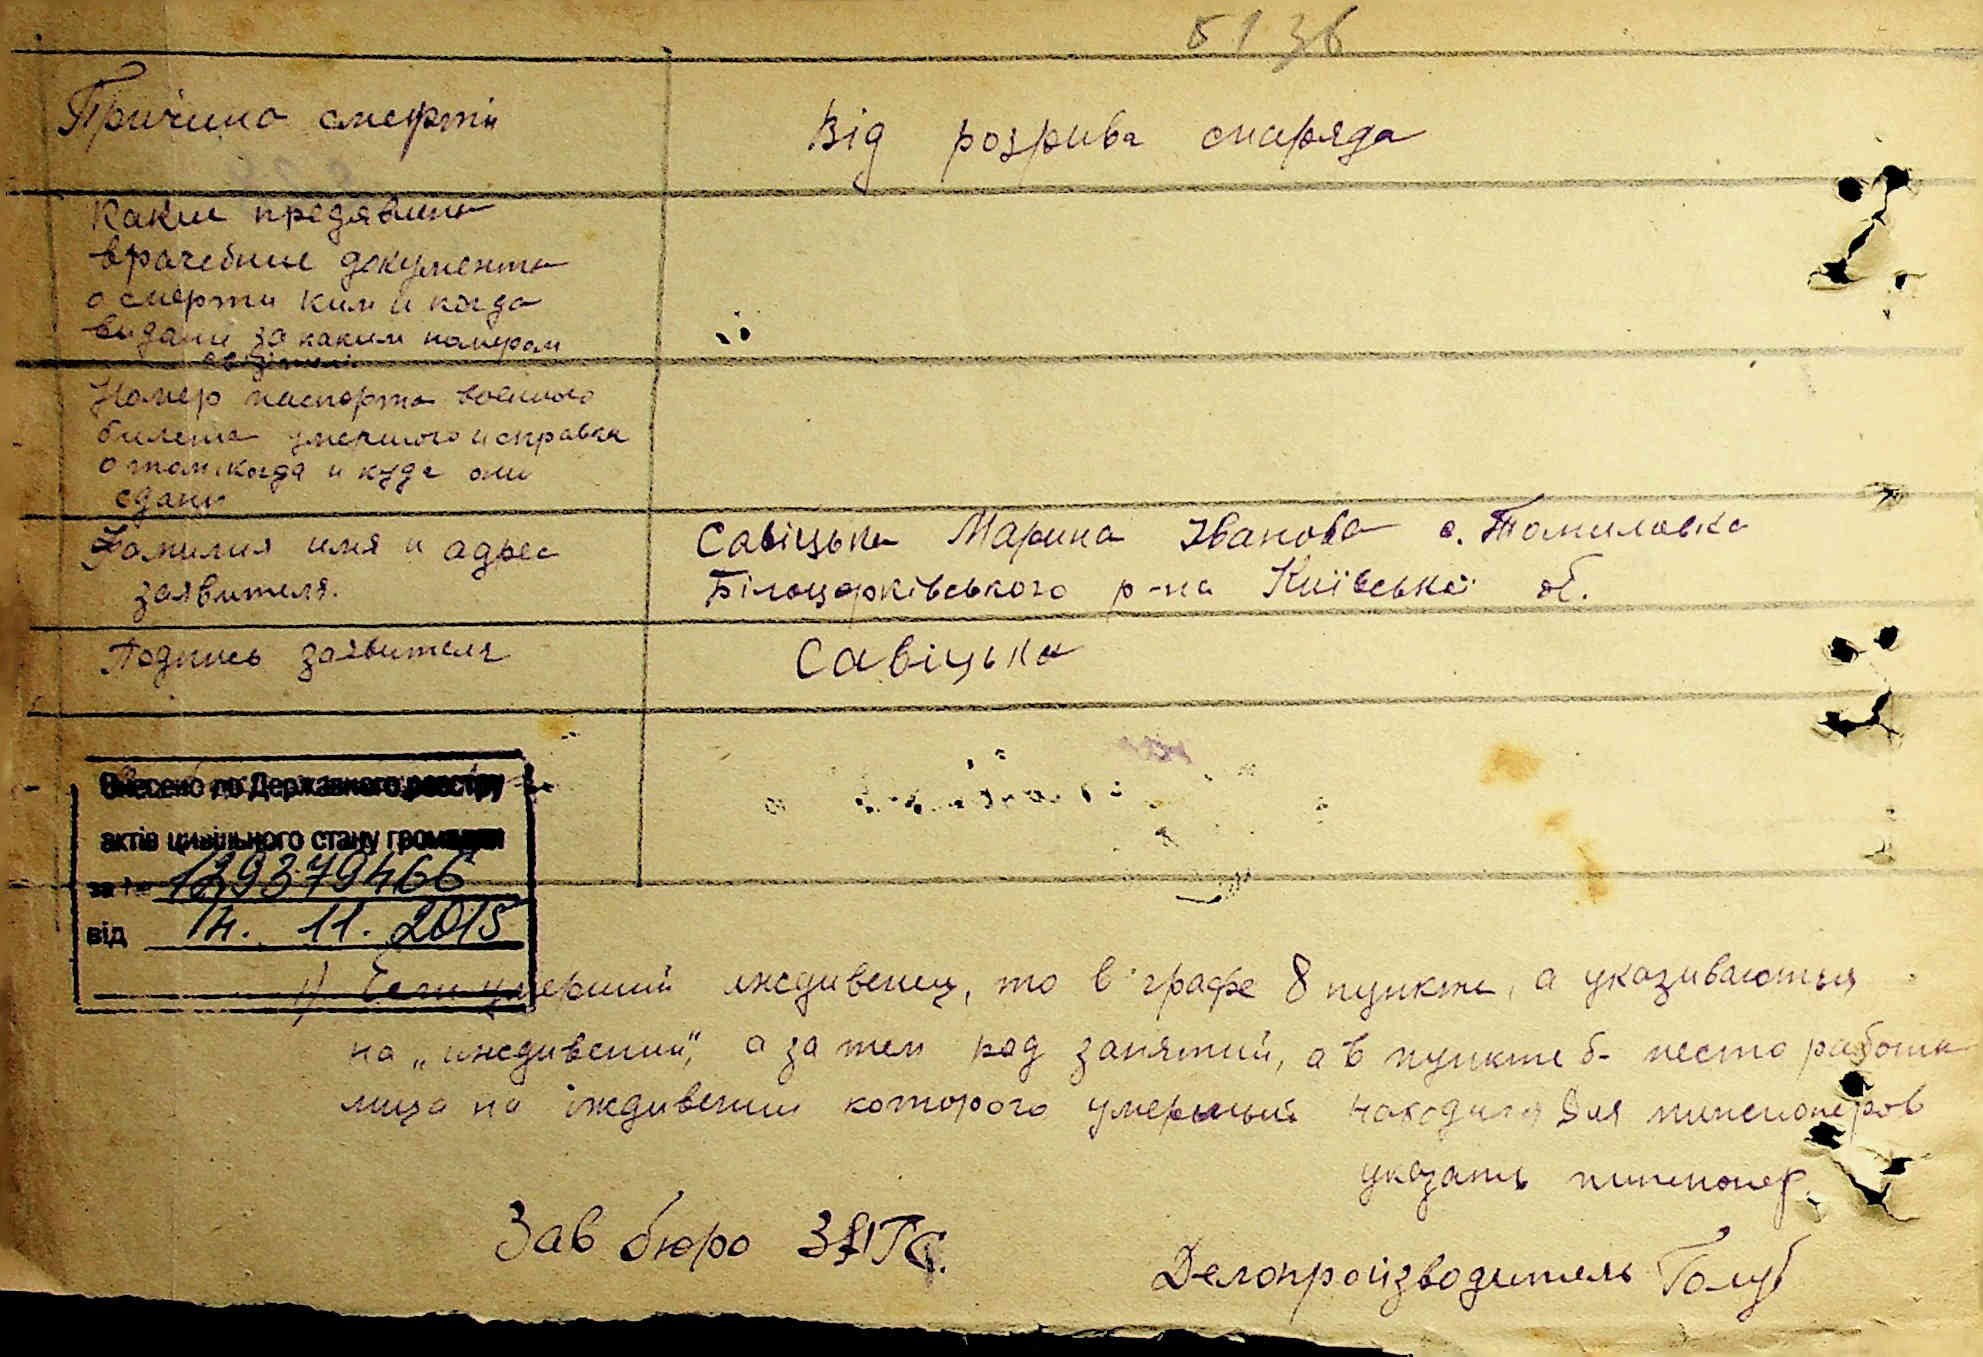 5136
Причина смерти
Від розрива снаряда
Какии предявлени
врачебнии документи
о смерти ким и когда
видани за каким номером
Номер паспорта военного
билета умершого и справка
о том когда и куда они
сдани
Фамилия имя и адрес
заявителя.
Савіцька Марина Іванова с. Томиловка
Білоцерківського р-на Київської об.
Подпись заявителя
Савіцька
Внесено до Державного реєстру
актів цивільного стану громадян
за №
від 14. 11. 2015
1) Если умерший иждивенец, то в графе 8 пункте, а указиваются
на „иждивении", а за тем род занятий, а в пункте б- место работи
лица на іждивении которого умерший находился Для пинсионеров
указать пинсионер.
Зав бюро ЗАГС.
Делопроізводитель Голуб